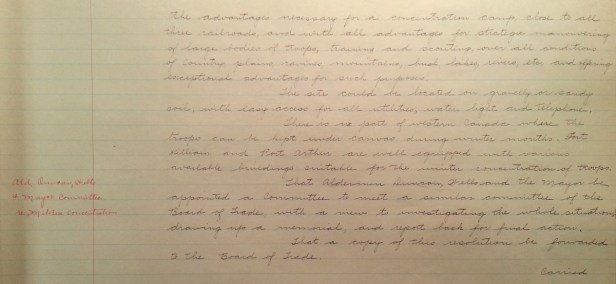 the advantages necessary for a concentration camp close to all
three railroads, and with all advantages for strategic maneuvering
of large bodies of troops, training and scouting, over all conditions
of country, plains, ravines, mountains, bush, lakes, rivers, etc. and offering
exceptional advantages for such purposes.
The site could be located on gravelly or sandy
soil, with easy access for all utilities, water, light and telephone.
There is no part of western Canada where the
troops can be kept under canvas during winter months. Fort
William and Port Arthur are well equipped with various
available buildings suitable for the winter concentration of troops.
Ald Duncan, Wells
& Mayor Committee
re Militia Concentration
That Aldermen Duncan, Wells and the Mayor be
appointed a Committee to meet a similar committee of the
Board of Trade, with a view to investigating the whole situation,
drawing up a memorial, and report back for final action.
That a copy of this resolution be forwarded
to the Board of Trade.
Carried